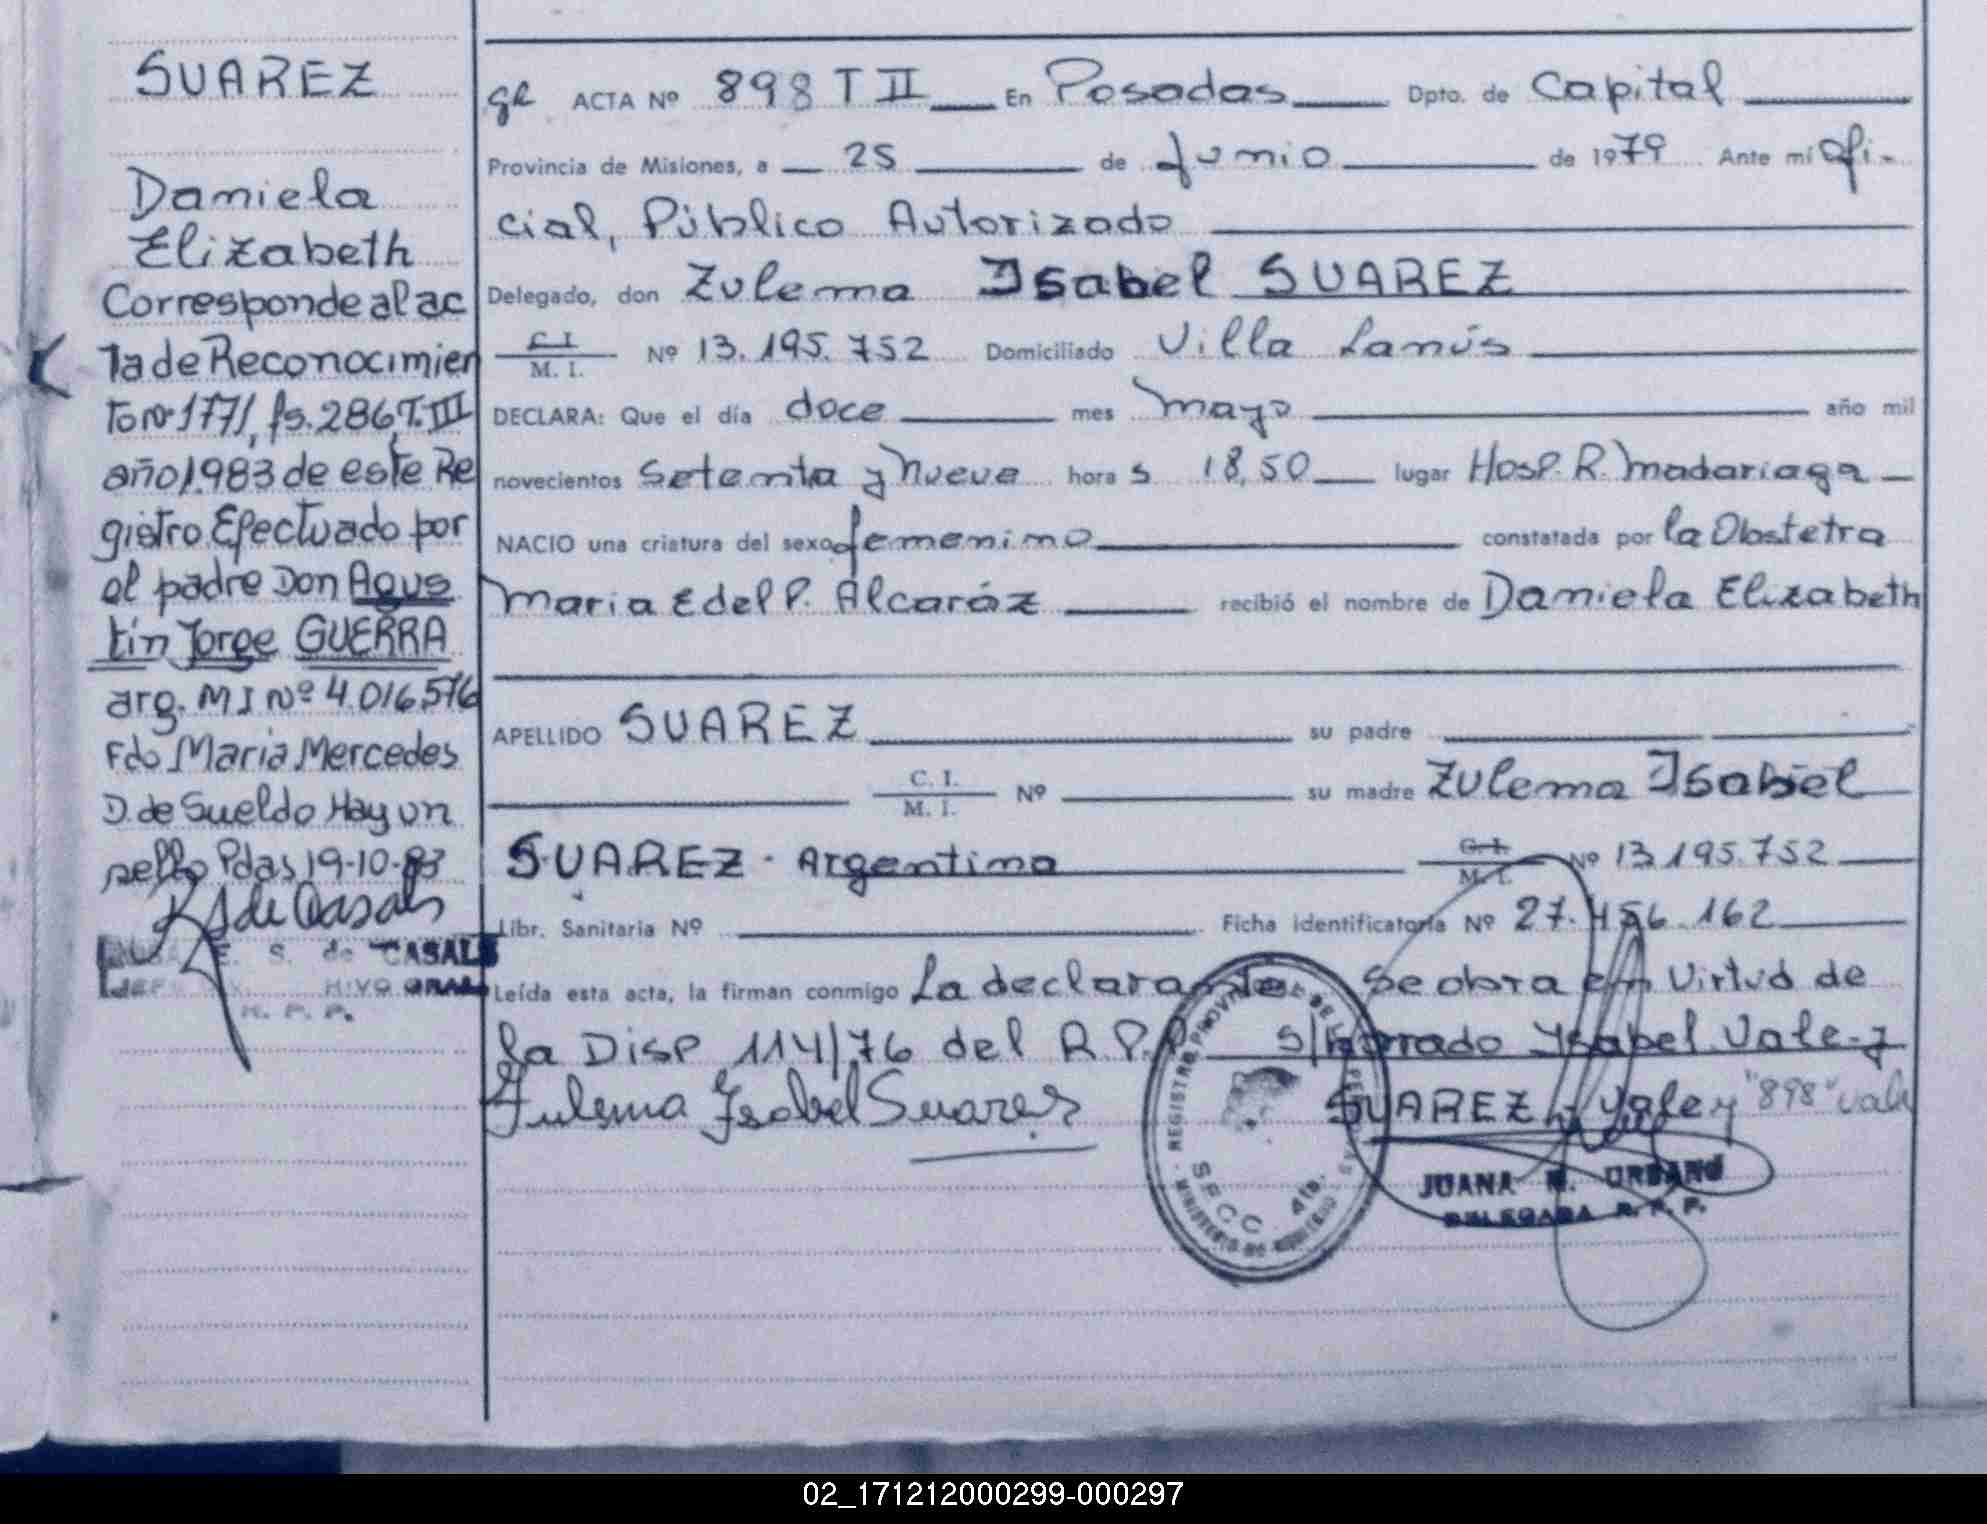 SUAREZ
Daniela
Elizabeth
Corresponde al ac
ta de Reconocimien
to nº 1771, fs. 286, T. III
año 1.983 de este Re
gistro. Efectuado por
el padre Don Agus
tín Jorge GUERRA
arg. M I Nº 4.016.576
Fdo Maria Mercedes
D. de Sueldo Hay un
sello Pdas 19-10-83
E. S. de CASALS
R. P. P.
ACTA Nº 898 T II En Posadas Dpto. de Capital
Provincia de Misiones, a 25 de Junio de 1979 Ante mí Ofi-
cial, Público Autorizado
Delegado, don Zulema Isabel SUAREZ
C. I.
M. I. Nº 13.195.752 Domiciliado Villa Lanús
DECLARA: Que el día doce mes mayo año mil
novecientos Setenta y Nueve hora s 18,50 lugar Hosp. R. Madariaga
NACIO una criatura del sexo femenino constatada por la Obstetra
Maria Edel P. Alcaráz recibió el nombre de Daniela Elizabeth
APELLIDO SUAREZ su padre
C. I.
M. I. Nº su madre Zulema Isabel
SUAREZ - Argentina C. I.
M. I. Nº 13.195.752
Libr. Sanitaria Nº Ficha identificatoria Nº 27.456.162
Leída esta acta, la firman conmigo La declarante Se obra en Virtud de
la Disp 114/76 del R.P.P. S/borrado Ysabel Vale-y
Zulema Isabel Suarez SUAREZ Vale y "898" vale
REGISTRO PROVINCIAL DE LAS PERSONAS
MINISTERIO DE GOBIERNO
SECC. 4ta.
JUANA URBANO
DELEGADA R. P. P.
02_171212000299-000297